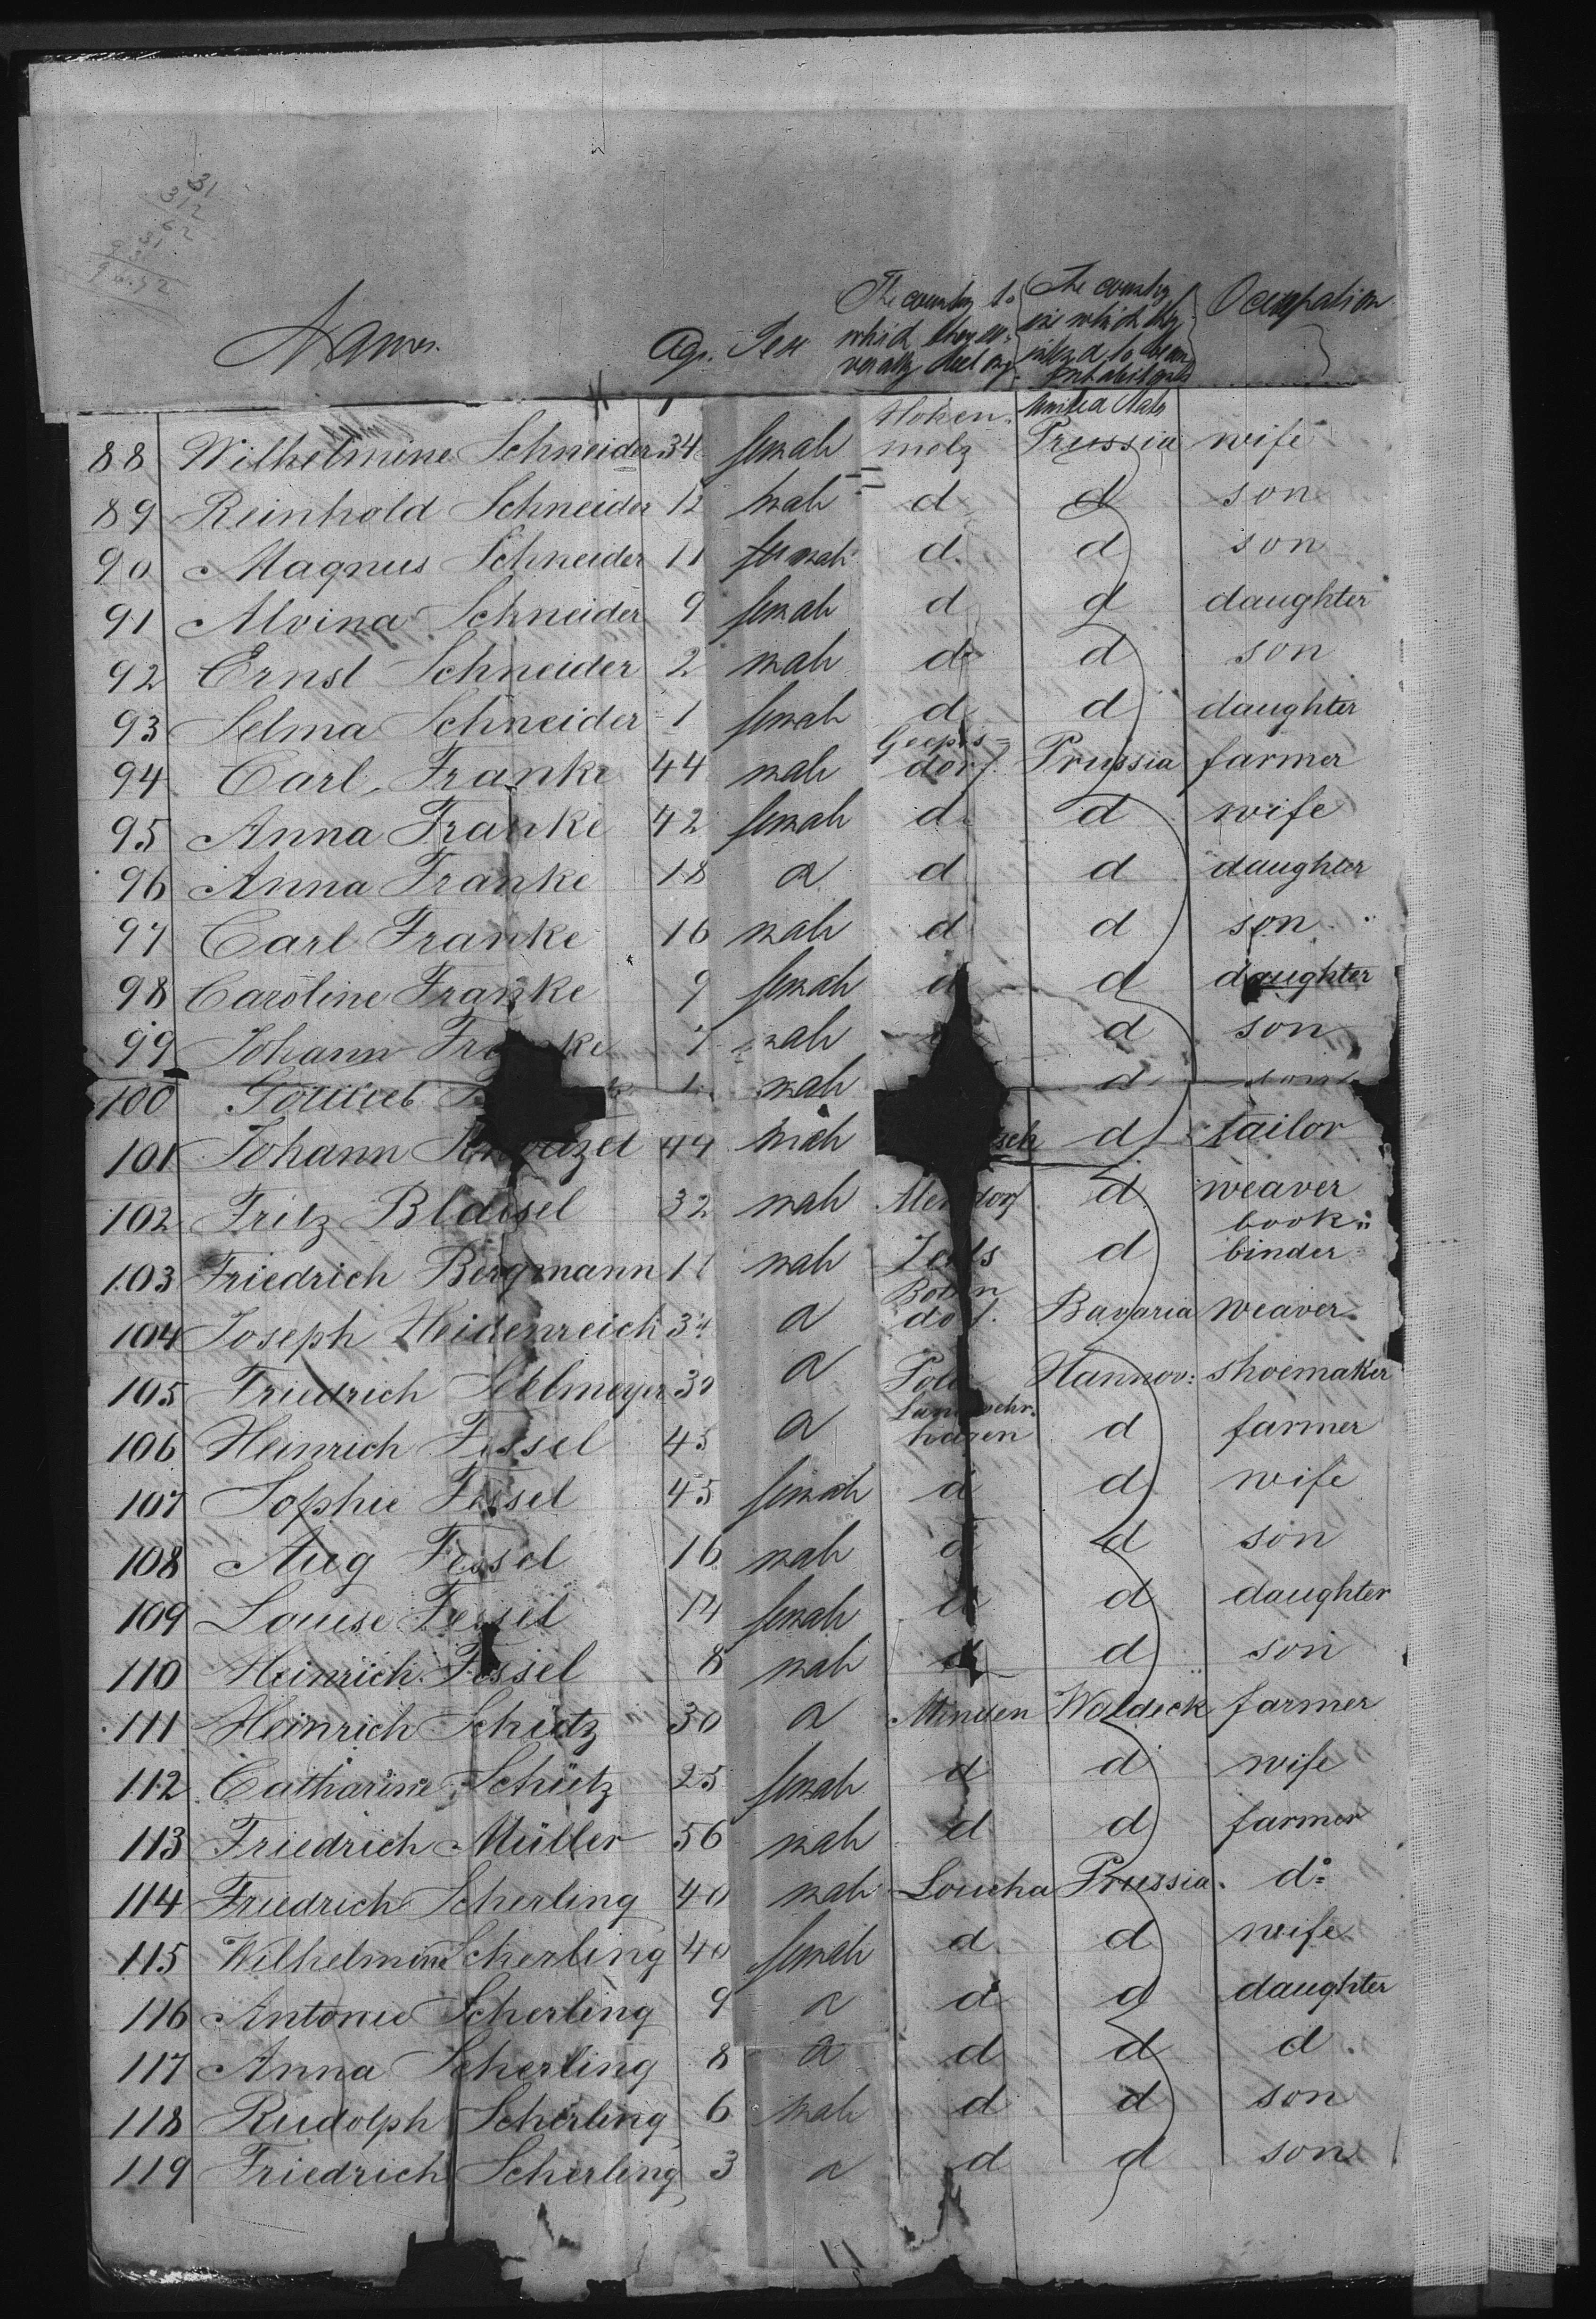 31
312
62
31
96.72
Names. Age. Sex The country to which they severally belong. The country in which they intend to become inhabitants Occupation
United States
88 Wilhelmine Schneider 34 female Hohenmolz Prussia wife
89 Reinhold Schneider 12 male d d son
90 Magnus Schneider 11 male d. d son
91 Alvina Schneider 9 female d d daughter
92 Ernst Schneider 2 male d d son
93 Selma Schneider 1 female d d daughter
94 Carl Franke 44 male dorf. Prussia farmer
95 Anna Franke 42 female d. d wife
96 Anna Franke 18 a d d daughter
97 Carl Franke 16 male d d son
98 Caroline Franke 9 female d d daughter
99 Johann Franke 7 male d son
100 Gottlieb 1 male d son
101 Johann 44 male d tailor
102 Fritz 32 male d weaver
103 Friedrich Bergmann 11 male d book=binder
104 Joseph Heidenreich 34 a dorf. Bavaria weaver
105 Friedrich Sellmeyer 30 a Hannov: shoemaker
106 Heinrich Fessel 45 a Landwehrhagen d farmer
107 Sophie Fessel 45 female d d wife
108 Aug Fessel 16 male d d son
109 Louise Fessel 14 female d d daughter
110 Heinrich Fessel 8 male d d son
111 Heinrich Schütz 30 a Minden Waldeck farmer
112 Catharine Schütz 25 female d d wife
113 Friedrich Müller 56 male d d farmer
114 Friedrich Scherling 40 male Loucha Prussia. do
115 Wilhelmine Scherling 40 female d. d wife
116 Antonie Scherling 9 a d d daughter
117 Anna Scherling 8 a d d d.
118 Rudolph Scherling 6 male d d son
119 Friedrich Scherling 3 a d d son